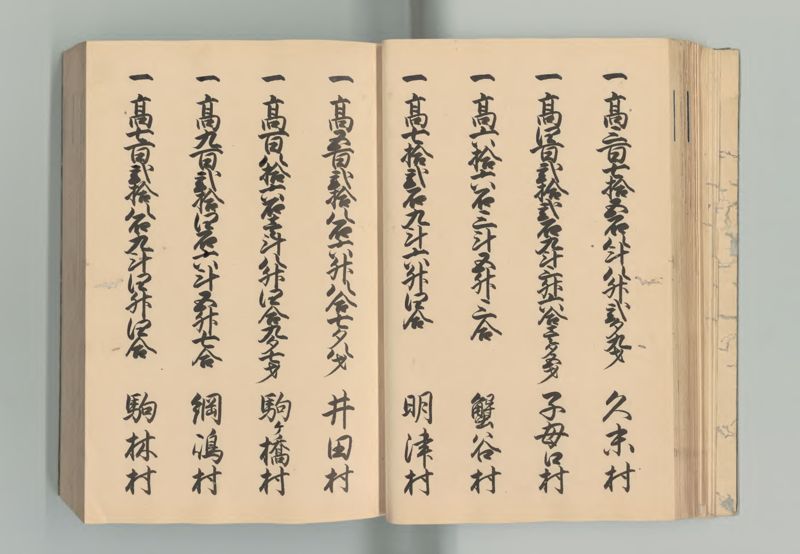 一 高二百七拾五石八斗八升弐夕九才 久末村
一 高四百弐拾弐石九斗三升六合三夕五才 子母口村
一 高六拾六石三斗五升三合 蟹谷村
一 高七拾弐石九斗六升四合 明津村
一 高五百弐拾八石六升八合七夕八才 井田村
一 高百八拾六石壱斗八升四合九夕七才 駒ケ橋村
一 高九百弐拾四石六斗五升七合 綱嶋村
一 高七百弐拾八石九斗四升四合 駒林村